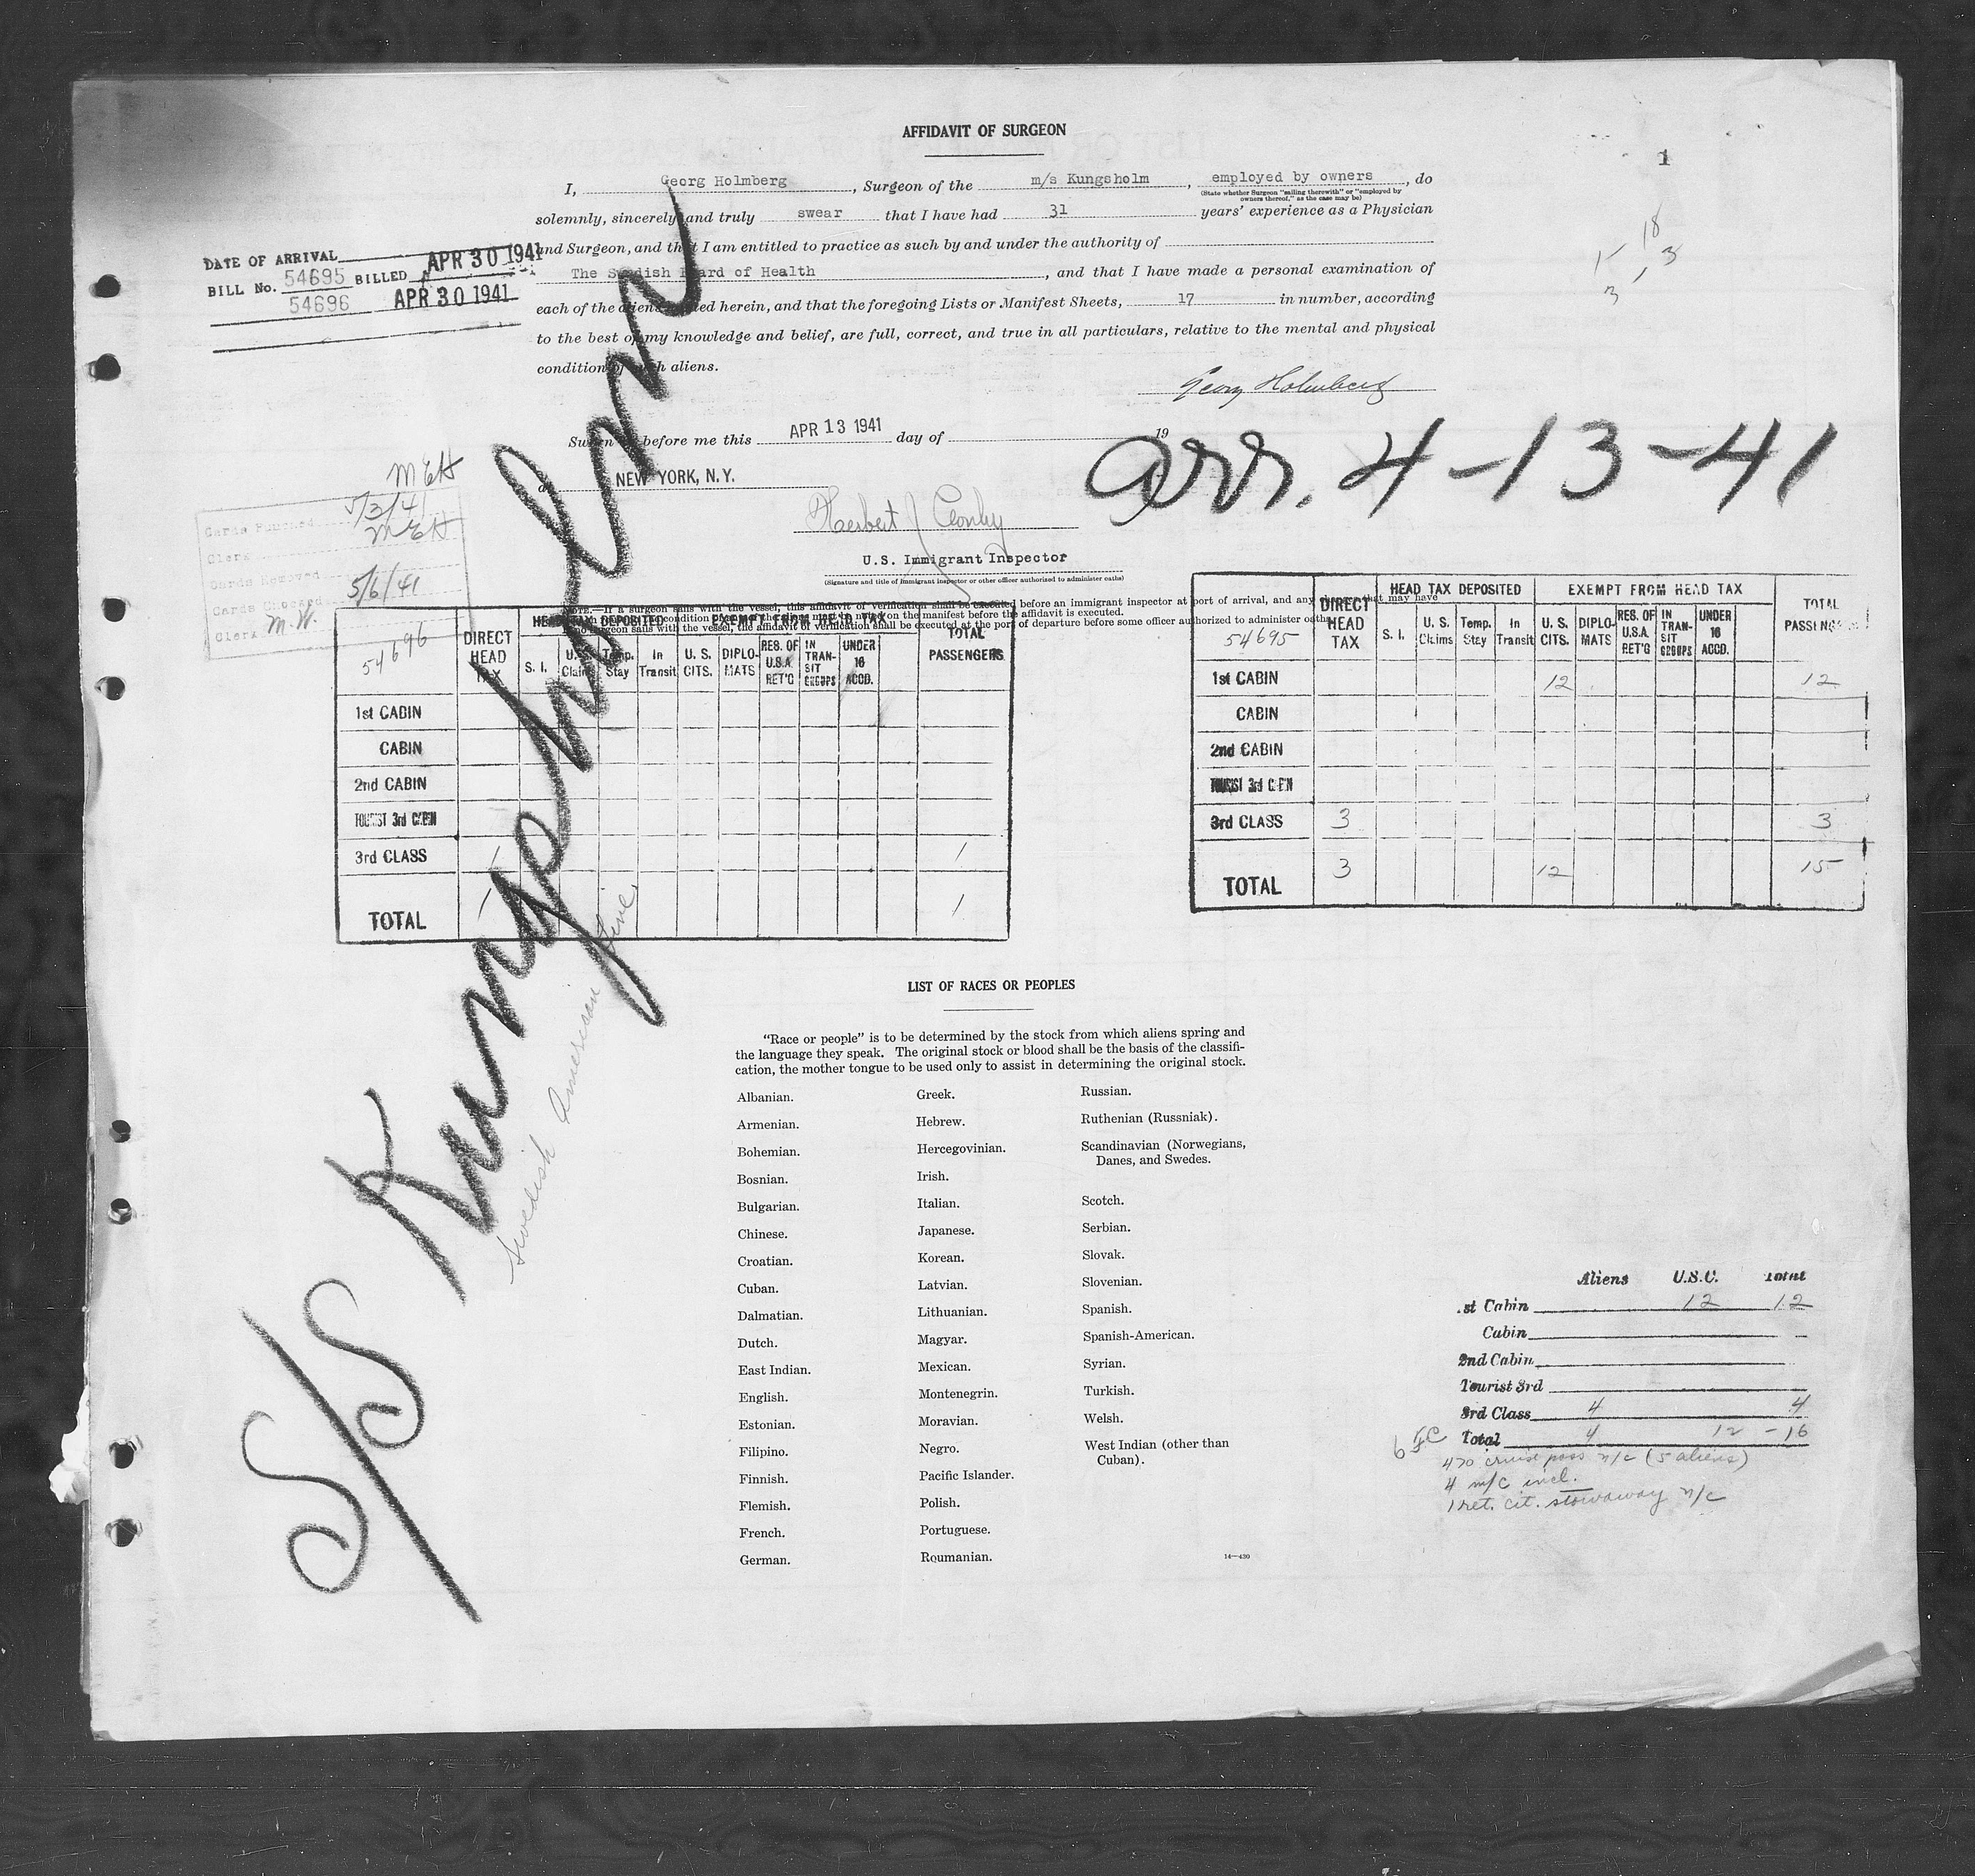 AFFIDAVIT OF SURGEON
1
I, Georg Holmberg, Surgeon of the m/s Kungsholm, employed by owners, do
(State whether Surgeon "sailing therewith" or "employed by
owners thereof," as the case may be)
solemnly, sincerely and truly swear that I have had 31 years' experience as a Physician
and Surgeon, and that I am entitled to practice as such by and under the authority of
The Swedish Board of Health, and that I have made a personal examination of
each of the aliens named herein, and that the foregoing Lists or Manifest Sheets, 17 in number, according
to the best of my knowledge and belief, are full, correct, and true in all particulars, relative to the mental and physical
condition of such aliens.
18
15 , 3
3
DATE OF ARRIVAL APR 30 1941
BILL No. 54695 BILLED
54696 APR 30 1941
Georg Holmberg
Sworn to before me this APR 13 1941 day of 19
at NEW YORK, N.Y.
arr. 4-13-41
Herbert J
U.S. Immigrant Inspector
(Signature and title of immigrant inspector or other officer authorized to administer oaths)
MEH
Cards Punched 5/3/41
Clerk MEH
Cards Removed
Cards Checked 5/6/41
Clerk M.W.
NOTE.—If a surgeon sails with the vessel, this affidavit of verification shall be executed before an immigrant inspector at port of arrival, and any that may have
condition of on the manifest before the affidavit is executed.
no surgeon sails with the vessel, the affidavit of verification shall be executed at the port of departure before some officer authorized to administer oaths.
54696
DIRECT HEAD TAX HEAD TAX DEPOSITED EXEMPT FROM HEAD TAX TOTAL PASSENGERS
S. I. U. S. Claims Temp. Stay In Transit U. S. CITS. DIPLO-MATS RES. OF U.S.A. RET'G IN TRAN-SIT GROUPS UNDER 16 ACCD.
1st CABIN
CABIN
2nd CABIN
TOURIST 3rd CABIN
3rd CLASS 1 1
TOTAL 1 1
54695
DIRECT HEAD TAX HEAD TAX DEPOSITED EXEMPT FROM HEAD TAX TOTAL PASSENGERS
S. I. U. S. Claims Temp. Stay In Transit U. S. CITS. DIPLO-MATS RES. OF U.S.A. RET'G IN TRAN-SIT GROUPS UNDER 16 ACCD.
1st CABIN 12 12
CABIN
2nd CABIN
TOURIST 3rd CABIN
3rd CLASS 3 3
TOTAL 3 12 15
S/S Kungsholm
Swedish American Line
LIST OF RACES OR PEOPLES
"Race or people" is to be determined by the stock from which aliens spring and
the language they speak. The original stock or blood shall be the basis of the classifi-
cation, the mother tongue to be used only to assist in determining the original stock.
Albanian.
Armenian.
Bohemian.
Bosnian.
Bulgarian.
Chinese.
Croatian.
Cuban.
Dalmatian.
Dutch.
East Indian.
English.
Estonian.
Filipino.
Finnish.
Flemish.
French.
German.
Greek.
Hebrew.
Hercegovinian.
Irish.
Italian.
Japanese.
Korean.
Latvian.
Lithuanian.
Magyar.
Mexican.
Montenegrin.
Moravian.
Negro.
Pacific Islander.
Polish.
Portuguese.
Roumanian.
Russian.
Ruthenian (Russniak).
Scandinavian (Norwegians,
Danes, and Swedes.
Scotch.
Serbian.
Slovak.
Slovenian.
Spanish.
Spanish-American.
Syrian.
Turkish.
Welsh.
West Indian (other than
Cuban).
14—430
Aliens U.S.C. Total
1st Cabin 12 12
Cabin
2nd Cabin
Tourist 3rd
3rd Class 4 4
Total 4 12 - 16
470 cruise pass n/c (5 aliens)
4 m/c incl.
1 ret. cit. stowaway n/c